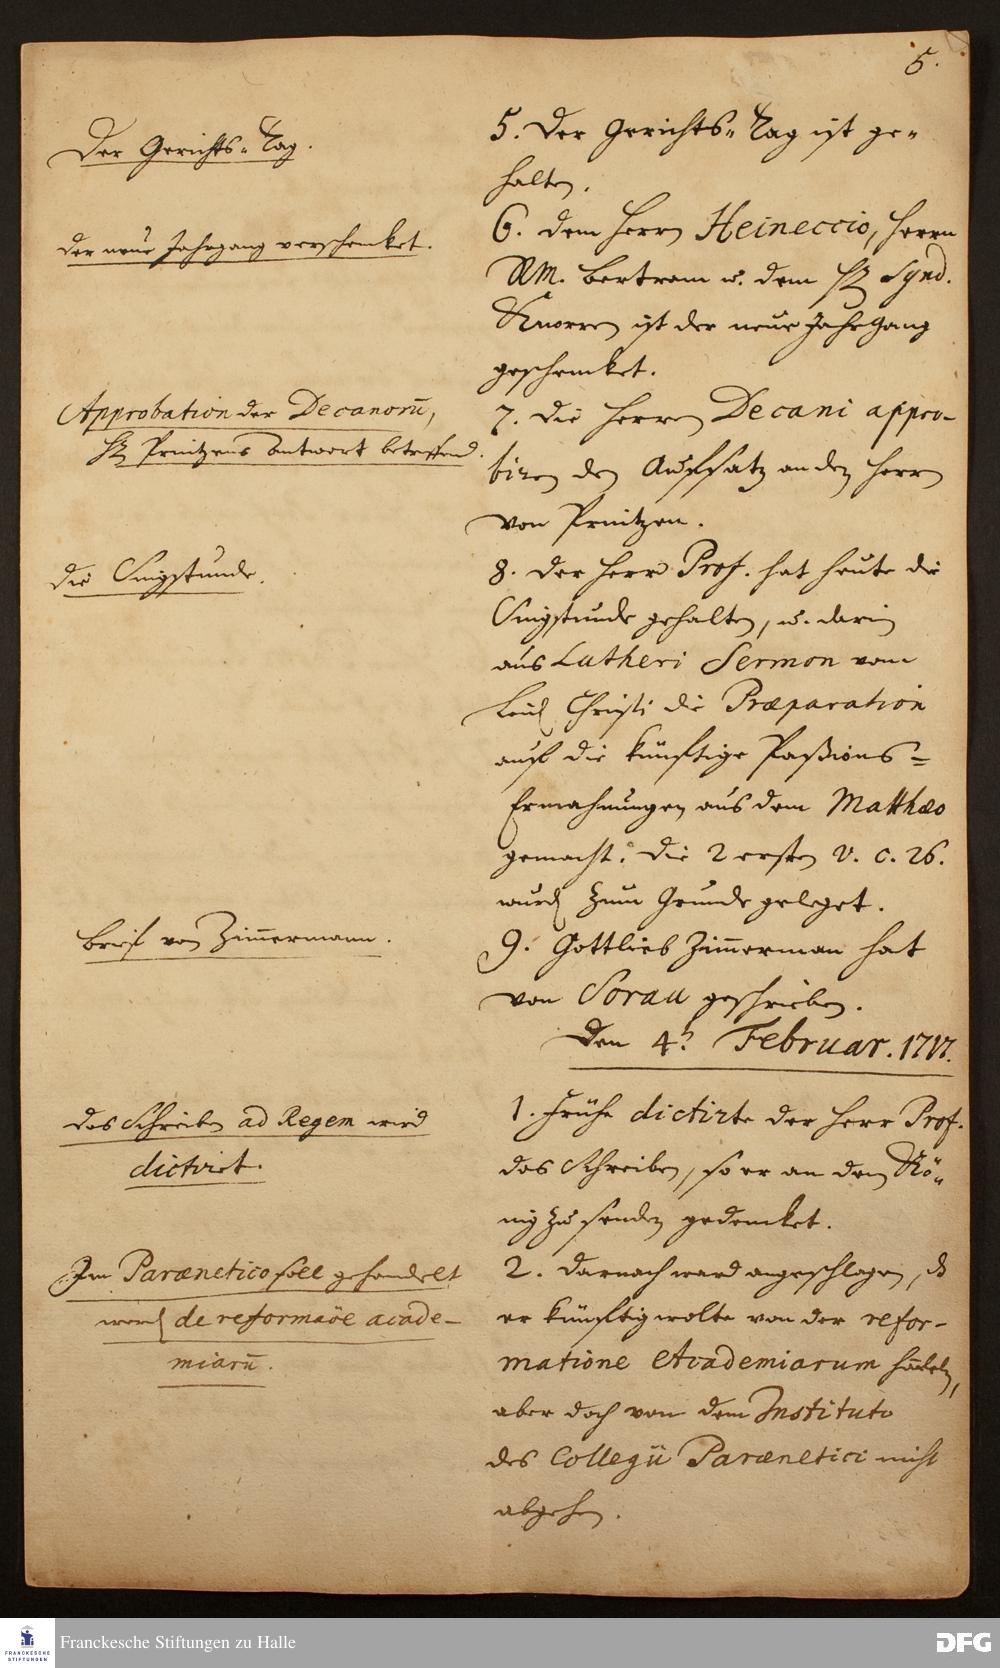 5.
Der Gerichts-Tag.
5. Der Gerichts-Tag ist ge-
halten.
der neue Jahrgang verschenket.
6. dem Herrn Heineccio, Herrn
RM. Bertram u. dem H. Synd.
Knorren ist der neue Jahrgang
geschencket.
Approbation der Decanorū,
H. Printzens Antwort betreffend.
7. die Herren Decani appro-
biren den Auffsatz an den Herrn
von Printzen.
die Singstunde.
8. Der Herr Prof. hat heute die
Singstunde gehalten, u. darin
aus Lutheri Sermon vom
Leid. Christi die Præparation
auff die künfftige Paßions-
Ermahnungen aus dem Matthæo
gemacht. die 2 ersten V. c. 26.
wurd. zum Grunde geleget.
Brief von Zim̄ermann.
9. Gottlieb Zim̄erman hat
von Sorau geschrieben.
Den 4. Februar. 1717.
das Schreiben ad Regem wird
dictiret.
1. Frühe dictirte der Herr Prof.
das Schreiben, so er an den Kö-
nig zu senden gedencket.
Im Parænetico soll gehandelt
werd. de reformaōe acade-
miarū.
2. Darnach ward angeschlagen, dß
er künfftig wolte von der refor-
matione Academiarum hādeln,
aber doch von dem Instituto
des Collegii Parænetici nicht
abgehen.
FRANCKESCHE
STIFTUNGEN
Franckesche Stiftungen zu Halle
DFG